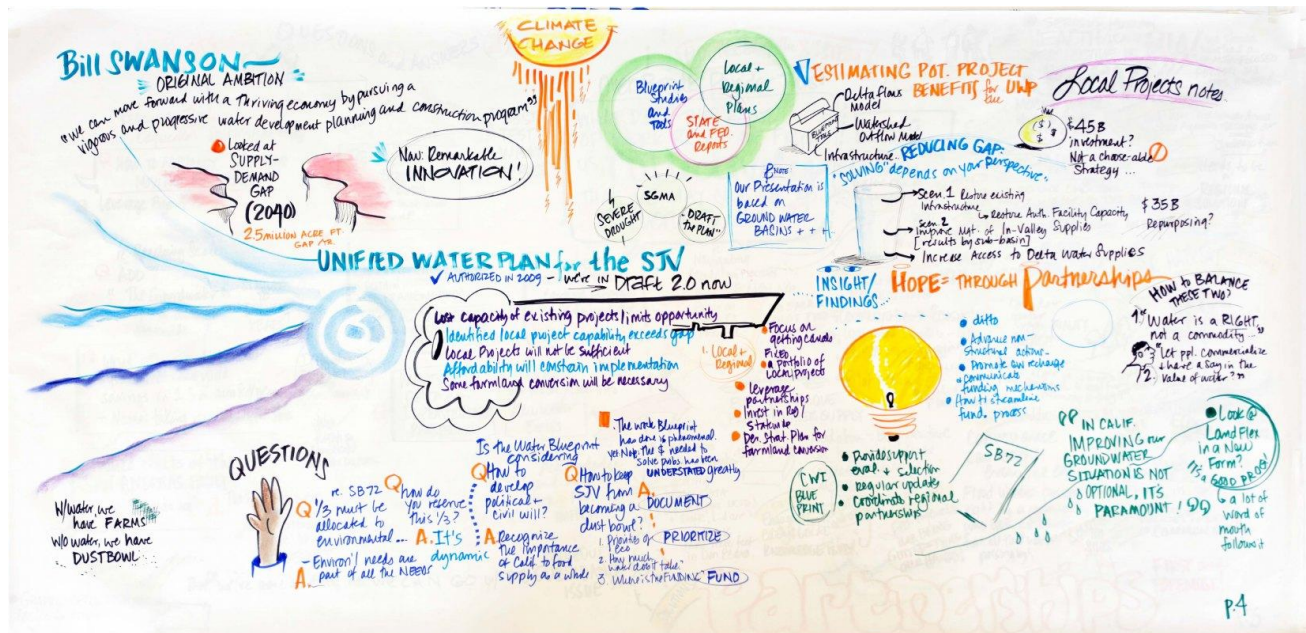 Bill SWANSON
ORIGINAL AMBITION
"We can move forward with a Thriving economy by pursuing a
vigorous and progressive water development planning and construction program"
Looked at
SUPPLY-
DEMAND
GAP
(2040)
2.5 MILLION ACRE FT.
GAP /YR.
Now: Remarkable
INNOVATION!
CLIMATE
CHANGE
Blueprint
Studies
and
Tools
Local +
Regional
Plans
STATE
and FED.
Reports
SEVERE
DROUGHT
SGMA
"DRAFT
the PLAN"
NOTE
Our Presentation is
based on
GROUND WATER
BASINS + + +
ESTIMATING POT. PROJECT
BENEFITS for
the UWP
Delta flows
Model
Watershed
Outflow Model
Infrastructure
REDUCING GAP:
"SOLVING" depends on your perspective"
Scen. 1 Restore existing
Infrastructure
Restore Auth. Facility Capacity
Scen. 2
Improve Mgt. of In-Valley Supplies
[results by sub-basin]
Increase Access to Delta Water Supplies
Local Projects notes
($)
$ $
$45B
investment?
Not a choose-able
Strategy...
$35B
Repurposing?
UNIFIED WATER PLAN for the SJV
✓ AUTHORIZED IN 2009 - we're IN Draft 2.0 now
Lost capacity of existing projects limits opportunity
Identified local project capability exceeds gap
Local Projects will not be sufficient
Affordability will constrain implementation
Some farmland conversion will be necessary
INSIGHT/
FINDINGS...
1. Local +
Regional
Focus on
getting canals
Fixed
a Portfolio of
Local projects
leverage
partnerships
Invest in Reg/
Statewide
Dev. Strat. Plan for
farmland conversion
HOPE = THROUGH Partnerships
ditto
Advance non-
Structural actions-
Promote GW recharge
communicate
funding mechanisms
How to streamline
fund. process
HOW to BALANCE
THESE TWO?
1. "Water is a RIGHT,
not a commodity..."
2. Let ppl. commercialize
+ have a say in the
value of water?"
CWI
BLUE
PRINT
Provide support
eval. + selection
Regular updates
Coordinate regional
partnerships
SB 72
"IN CALIF.
IMPROVING our
GROUNDWATER
SITUATION IS NOT
OPTIONAL, IT'S
PARAMOUNT!"
Look @
Land Flex
in a New
Form?
IT'S a GOOD PROG!
a lot of
word of
mouth
follows it
W/water, we
have FARMS
W/o water, we have
DUSTBOWL
QUESTIONS
re. SB 72
Q 1/3 must be
allocated to
environmental...
A. - Environ'l needs are
part of all the NEEDS
Q how do
you reserve
this 1/3?
A. It's
dynamic
Is the Water Blueprint
considering
Q How to
develop
political +
civil will?
A. Recognize
the importance
of Calif. to food
supply as a whole
The work Blueprint
has done is phenomenal.
yet Note: The $ needed to
solve probs has been
UNDERSTATED greatly
Q How to keep
SJV from
becoming a
dust bowl?
A. DOCUMENT
1. Priorities of
eco
PRIORITIZE
2. How much
water does it take?
3. Where is the FUNDING"
FUND
p.4